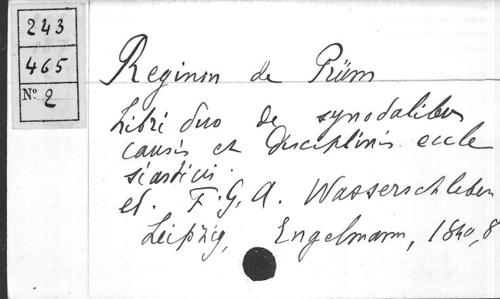 243
465
No 2
Reginon de Prüm
Libri duo de synodalibus
causis et disciplinis eccle
siasticis.
ed. F. G. A. Wasserschleben
Leipzig, Engelmann, 1840, 8